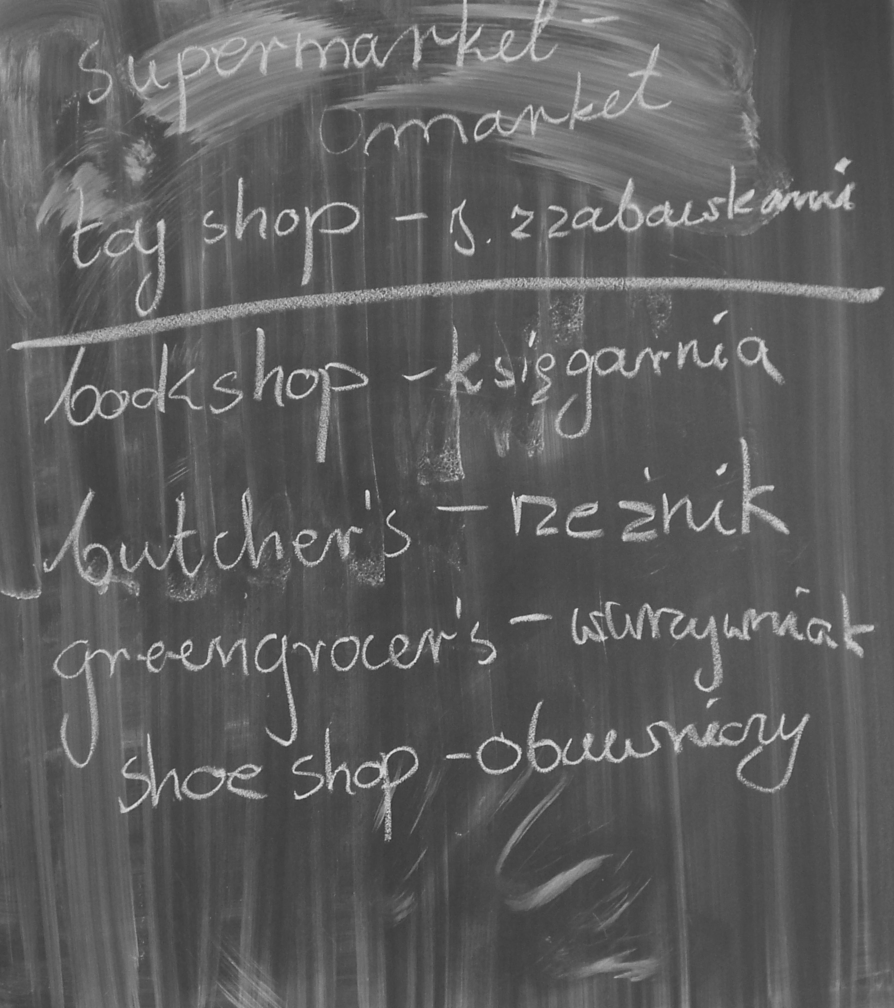 supermarket -
market
toy shop - s. z zabawkami
bookshop - księgarnia
butcher's - rzeźnik
greengrocer's - warzywniak
shoe shop - obuwniczy